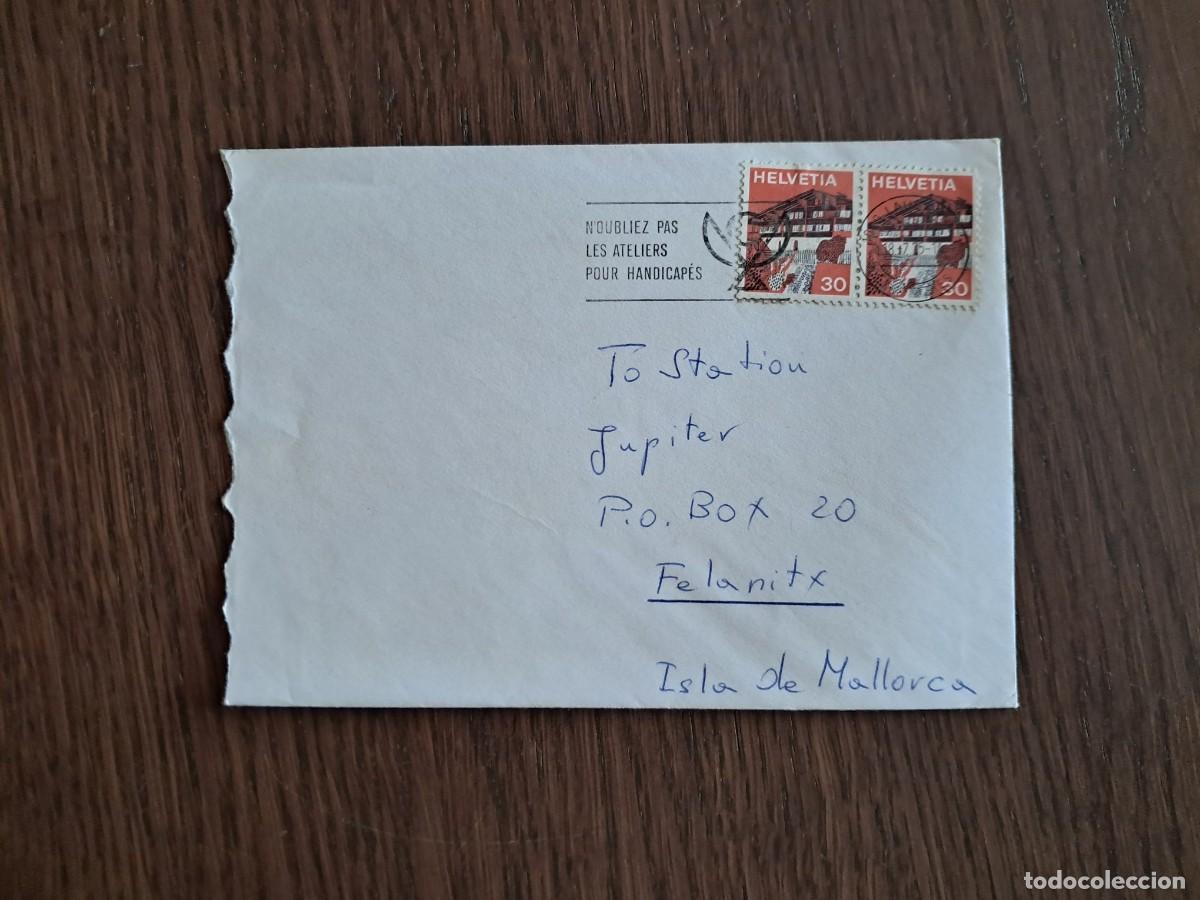 HELVETIA HELVETIA
N'OUBLIEZ PAS
LES ATELIERS
POUR HANDICAPÉS
30 30
To Station
Jupiter
P.O. Box 20
Felanitx
Isla de Mallorca
todocoleccion